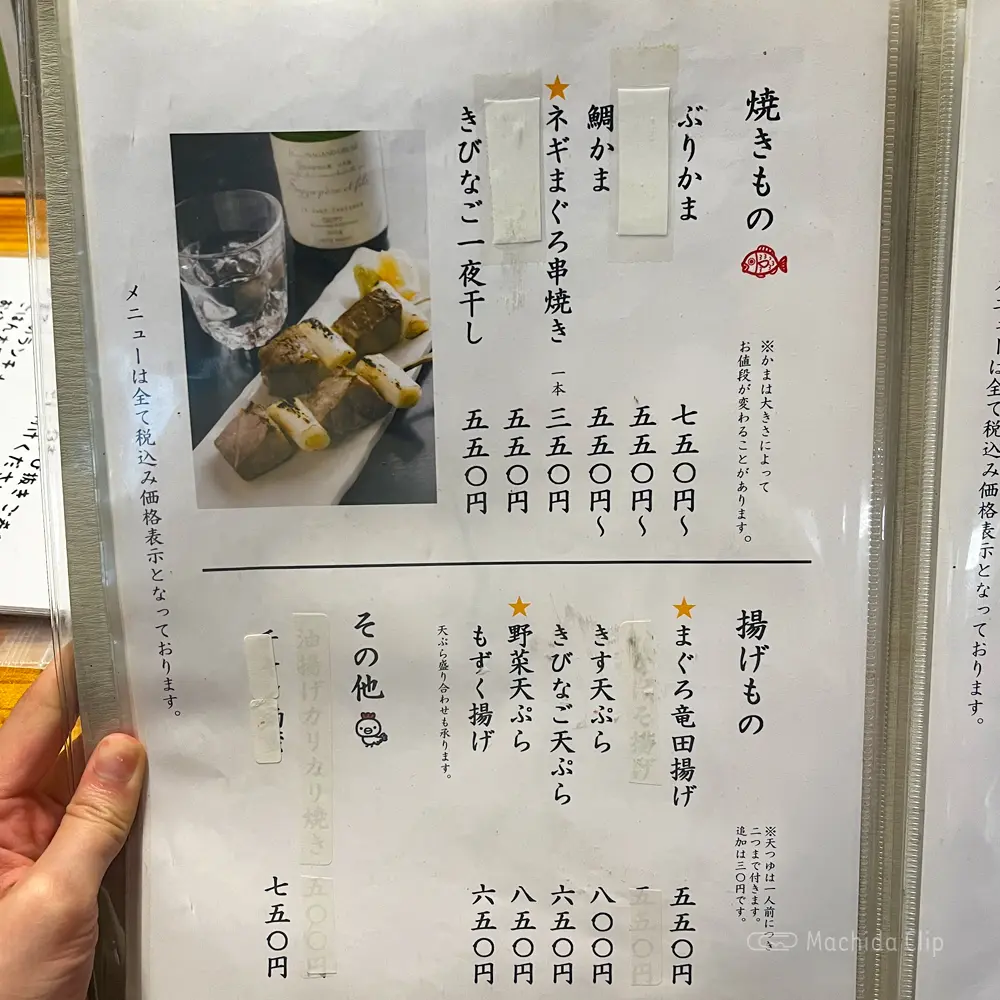 焼きもの
※かまは大きさによって
お値段が変わることがあります。
ぶりかま 七五〇円～
五五〇円～
鯛かま 五五〇円～
★ネギまぐろ串焼き 一本 三五〇円
五五〇円
きびなご一夜干し 五五〇円
メニューは全て税込み価格表示となっております。
揚げもの
※天つゆは一人前につき
二つまで付きます。
追加は三〇円です。
★まぐろ竜田揚げ 五五〇円
きす天ぷら 八〇〇円
きびなご天ぷら 六五〇円
★野菜天ぷら 八五〇円
もずく揚げ 六五〇円
天ぷら盛り合わせも承ります。
その他
油揚げカリカリ焼き 五〇〇円
七五〇円
Machida Clip